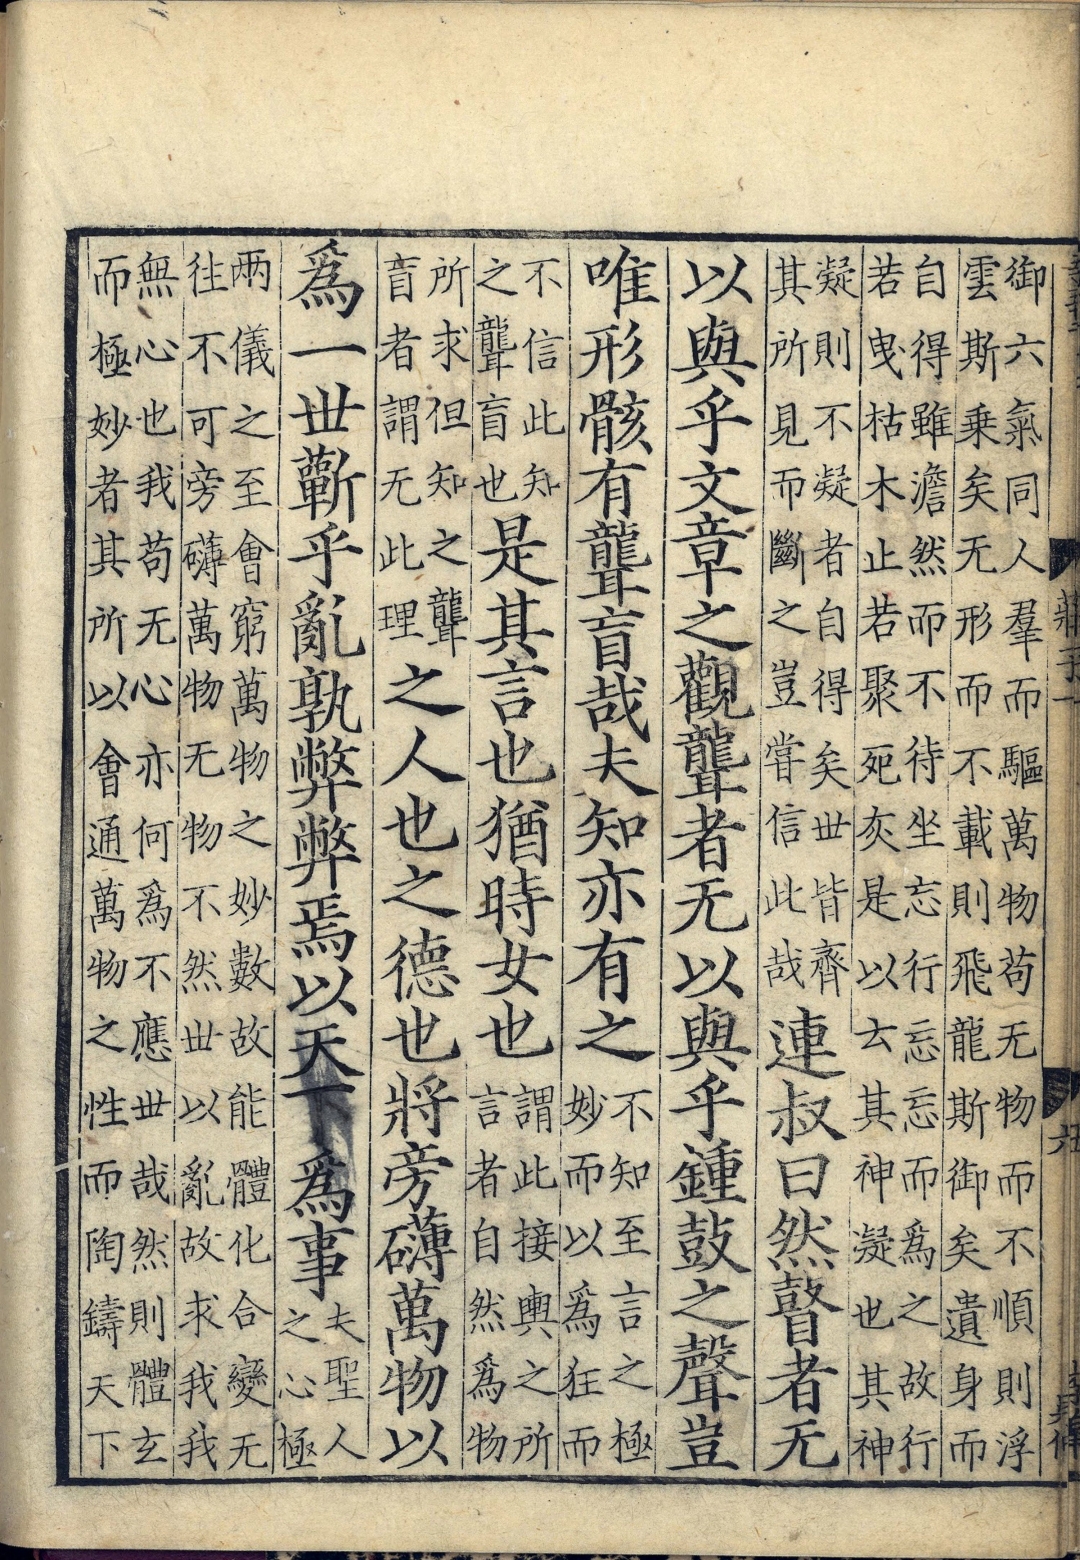 御六氣同人羣而驅萬物苟无物而不順則浮
雲斯乗矣无形而不載則飛龍斯御矣遺身而
自得雖澹然而不待坐忘行忘忘而爲之故行
若曳枯木止若聚死灰是以云其神凝也其神
凝則不凝者自得矣丗皆齊
其所見而斷之豈嘗信此哉
連叔曰然瞽者无
以與乎文章之觀聾者无以與乎鍾鼓之聲豈
唯形骸有聾盲哉夫知亦有之
不知至言之極
妙而以爲狂而
不信此知
之聾盲也
是其言也猶時女也
謂此接輿之所
言者自然爲物
所求但知之聾
盲者謂无此理
之人也之德也將旁礴萬物以
爲一丗蘄乎亂孰弊弊焉以天下爲事
夫聖人
之心極
兩儀之至會窮萬物之妙數故能體化合變无
往不可旁礴萬物无物不然丗以亂故求我我
無心也我苟无心亦何爲不應丗哉然則體玄
而極妙者其所以會通萬物之性而陶鑄天下